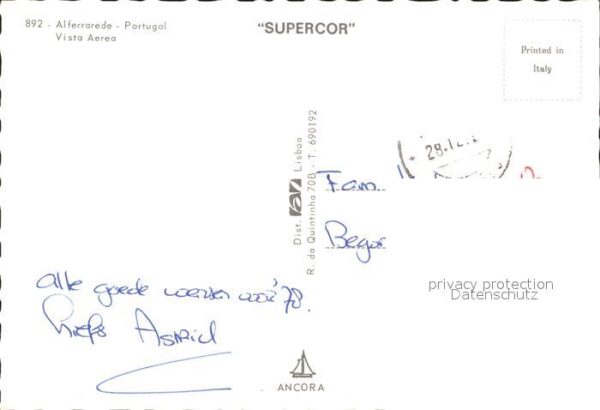 892 - Alferrarede - Portugal
Vista Aerea
"SUPERCOR"
Printed in
Italy
Dist. Lisboa
R. da Quintinha 70B - T. 690192
28.12.
Fam.
privacy protection
Datenschutz
alle goede wensen voor '78.
Liefs Astrid
ANCORA